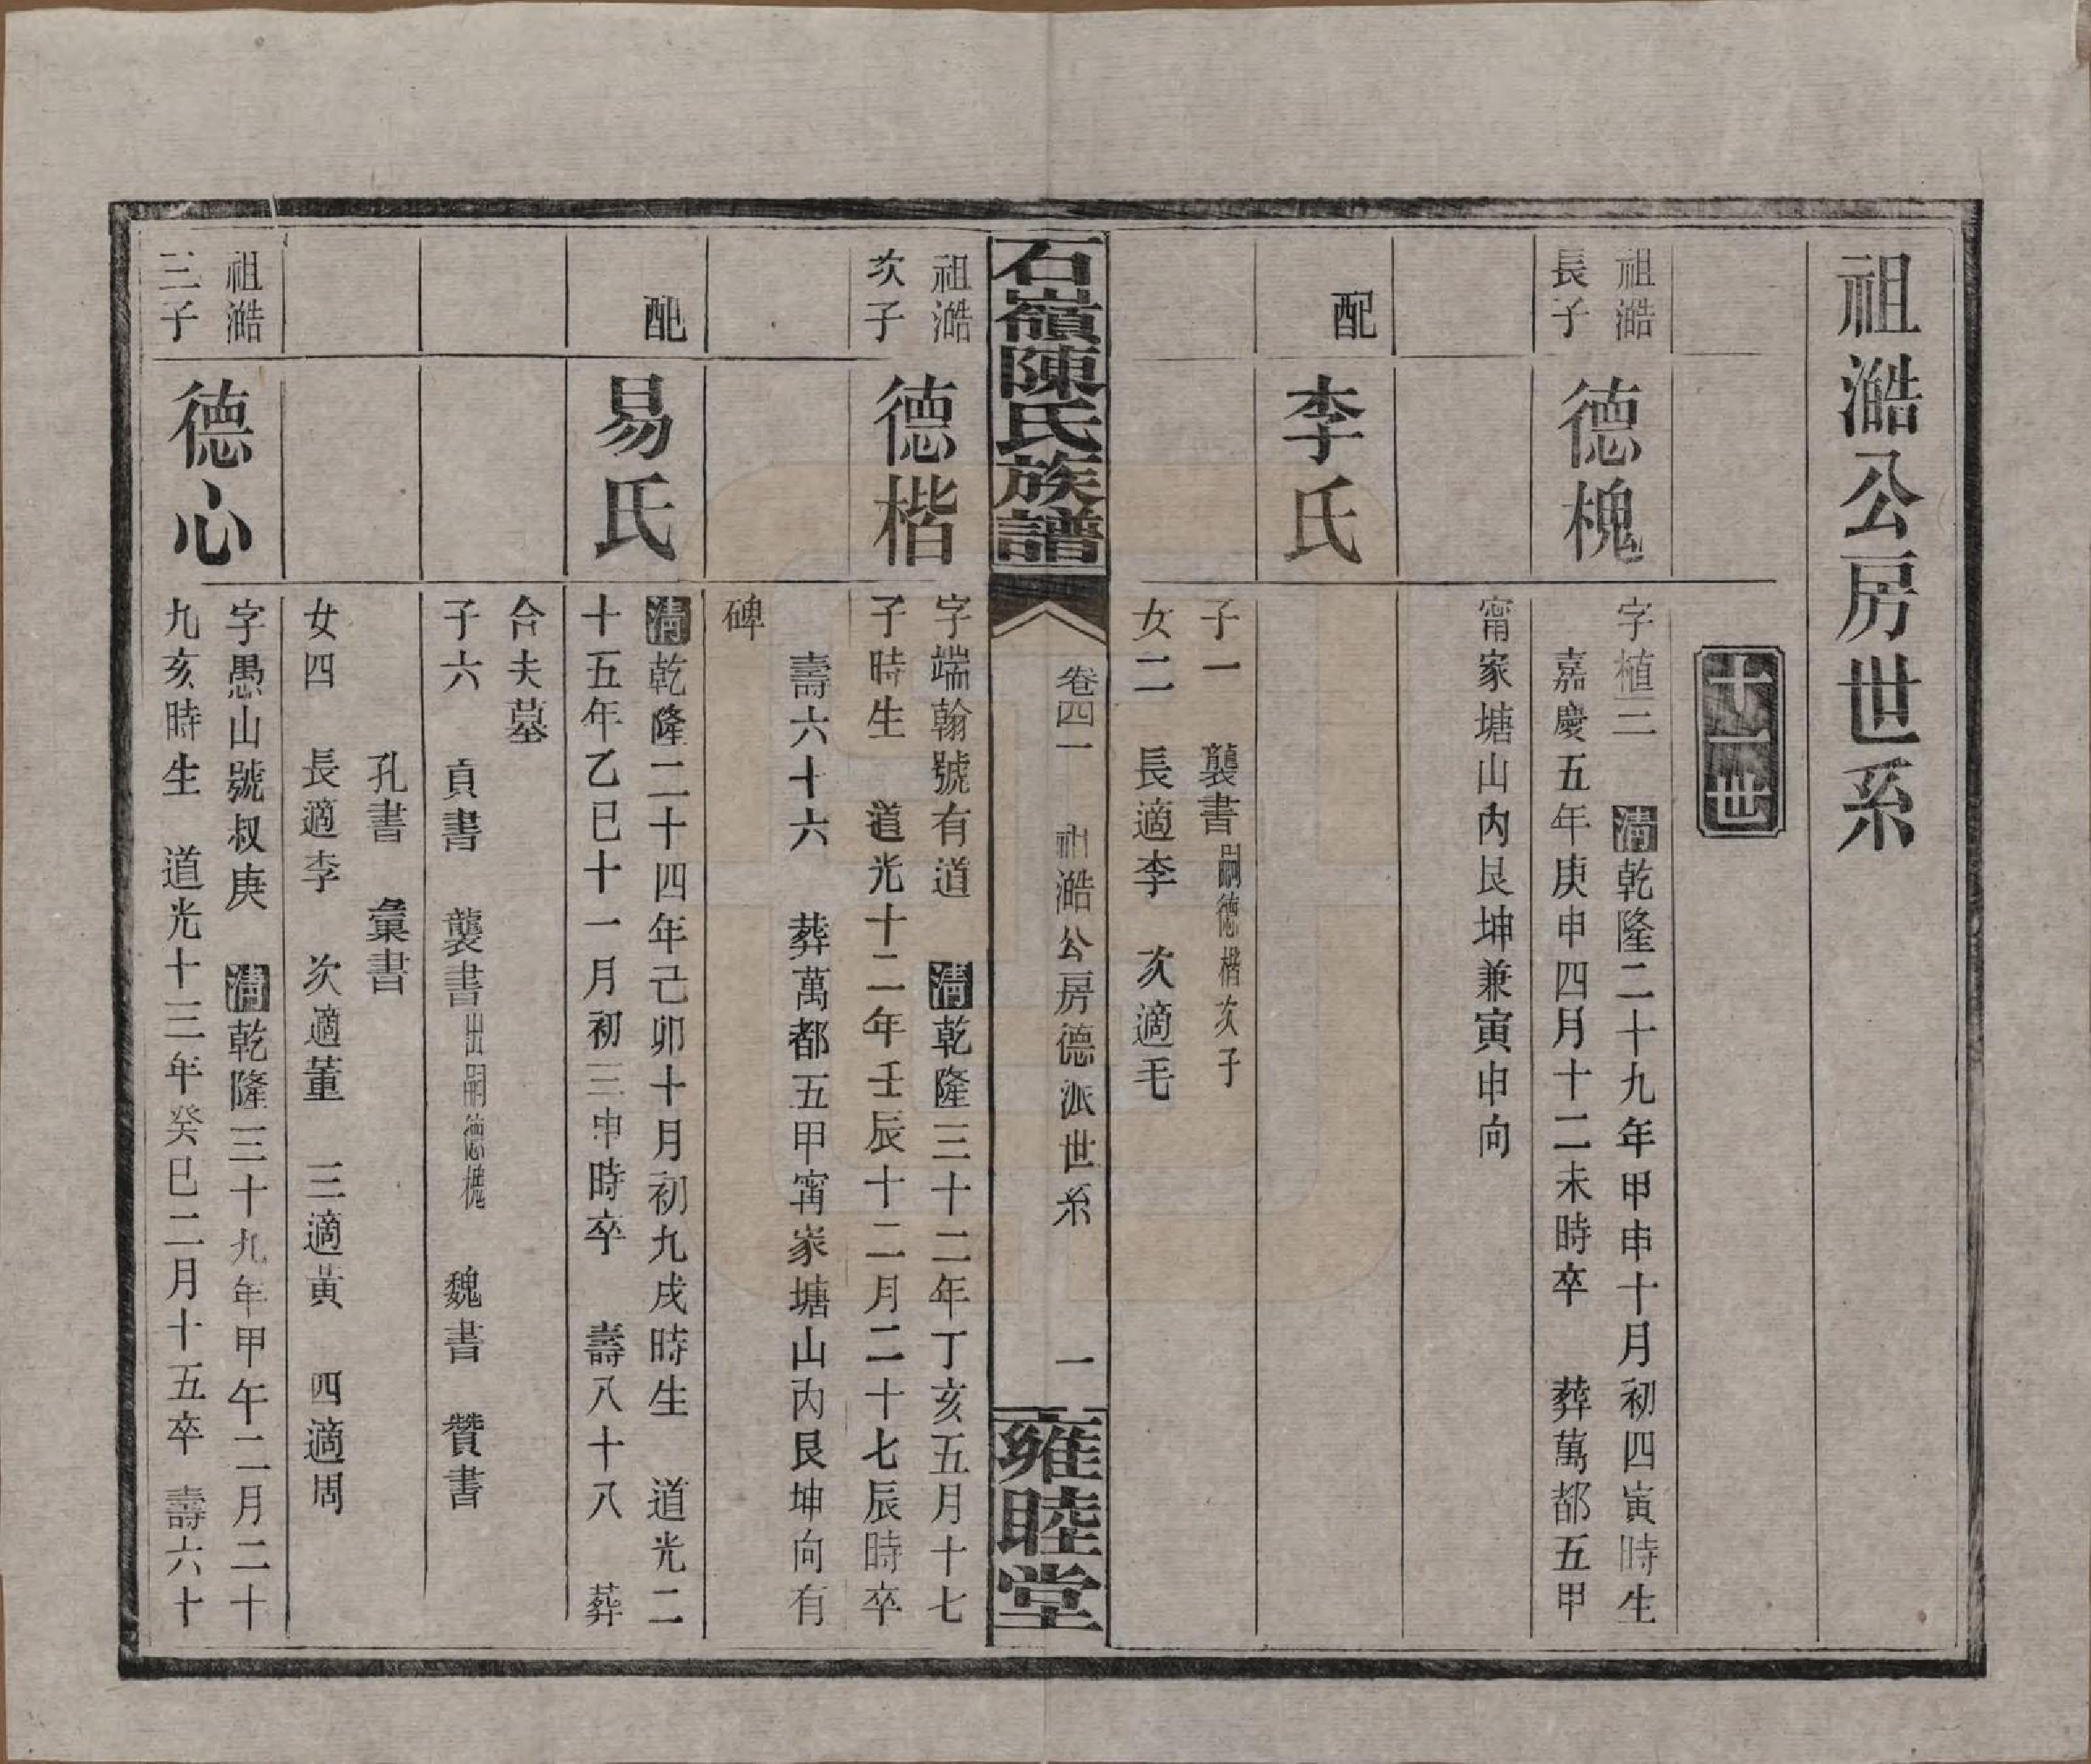 祖澔公房世系
十一世
祖澔
長子
德槐
字植三　清乾隆二十九年甲申十月初四寅時生
嘉慶五年庚申四月十二未時卒　葬萬都五甲
甯家塘山內艮坤兼寅申向
配
李氏
子一　襲書嗣德楷次子
女二　長適李　次適毛
石嶺陳氏族譜
卷四一　祖澔公房德派世系　一
雍睦堂
祖澔
次子
德楷
字端翰號有道　清乾隆三十二年丁亥五月十七
子時生　道光十二年壬辰十二月二十七辰時卒
壽六十六　葬萬都五甲甯家塘山內艮坤向有
碑
配
易氏
清乾隆二十四年己卯十月初九戌時生　道光二
十五年乙巳十一月初三申時卒　壽八十八　葬
合夫墓
子六　貞書　襲書出嗣德槐　魏書　贊書
孔書　彙書
女四　長適李　次適董　三適黃　四適周
祖澔
三子
德心
字愚山號叔庚　清乾隆三十九年甲午二月二十
九亥時生　道光十三年癸巳二月十五卒　壽六十